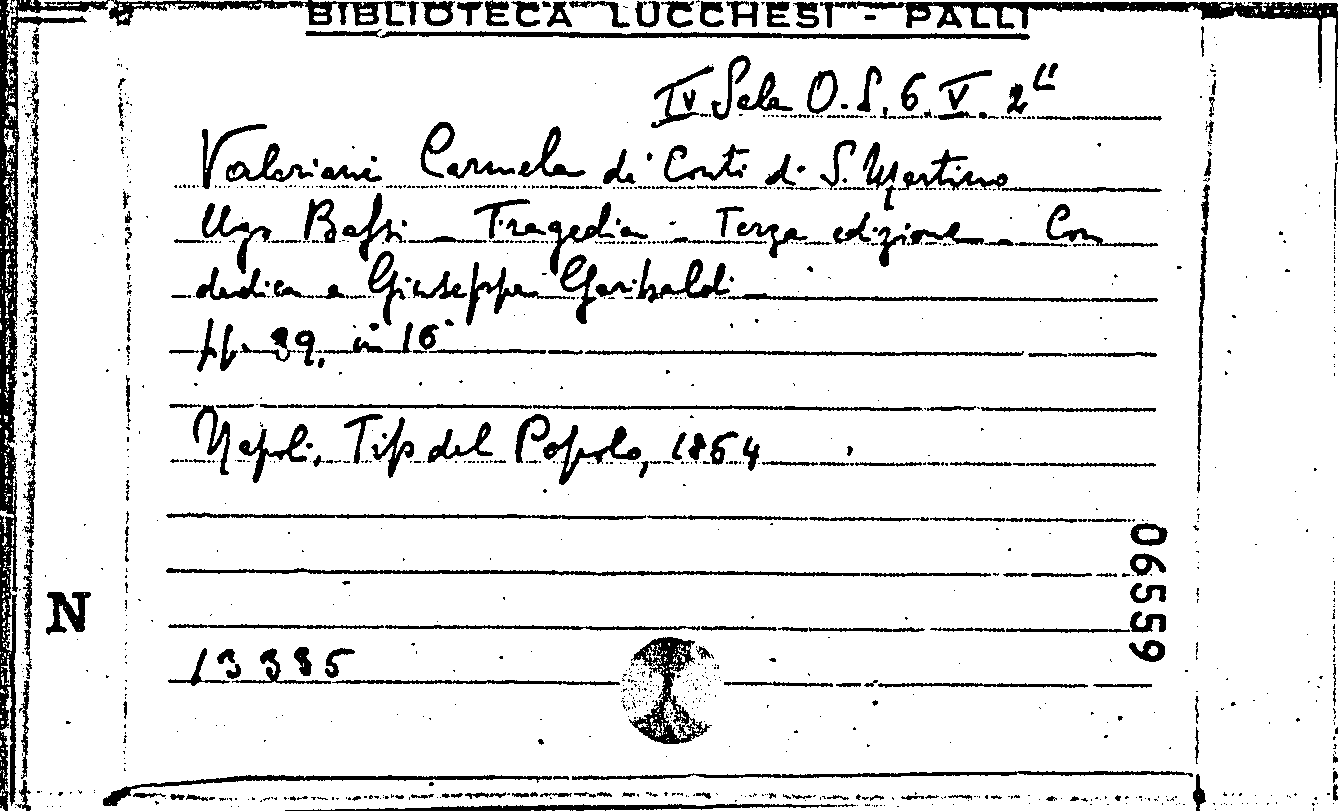 BIBLIOTECA LUCCHESI - PALLI
IV Sala O. S. 6. V. 2
Valeriani Carmela di Conti di S. Martino
Ugo Bassi - Tragedia - Terza edizione - Con
dedica a Giuseppe Garibaldi -
pp. 39, in 16°
Napoli, Tip del Popolo, 1864
06559
N
13385